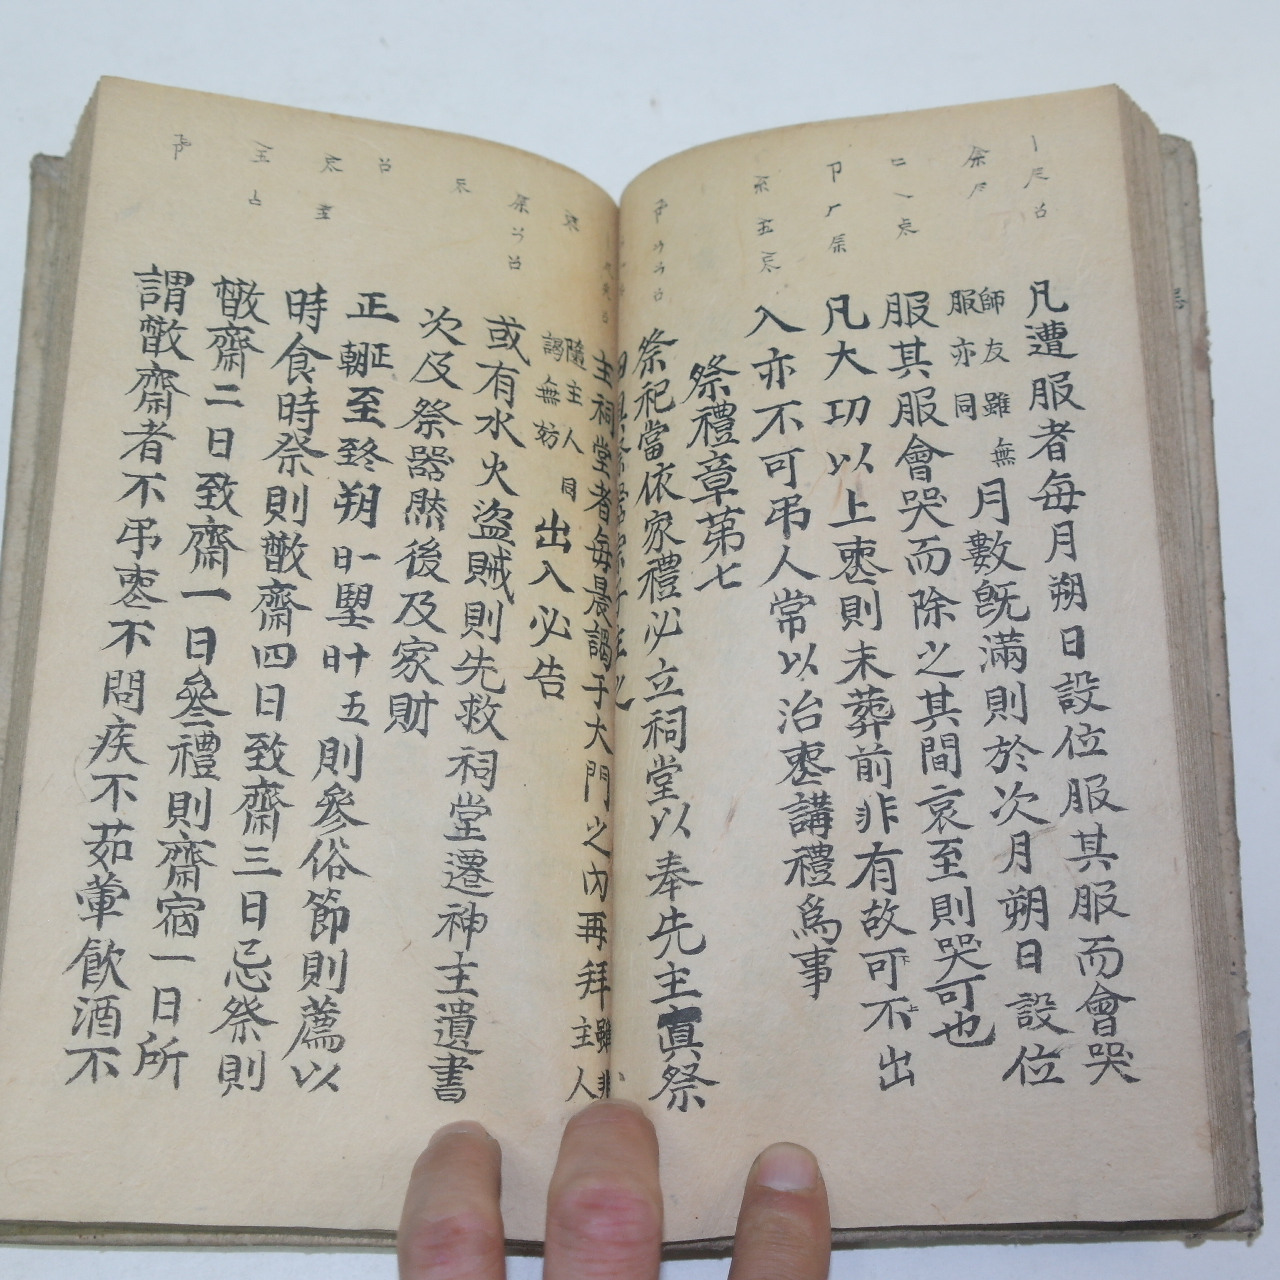 凡遭服者每月朔日設位服其服而會哭
師友雖無
服亦同
月數旣滿則於次月朔日設位
服其服會哭而除之其間哀至則哭可也
凡大功以上喪則未葬前非有故可不出
入亦不可弔人常以治喪講禮爲事
祭禮章第七
祭祀當依家禮必立祠堂以奉先主眞祭
主祠堂者每晨謁于大門之內再拜雖非主人
隨主人同
謁無妨
出入必告
或有水火盜賊則先救祠堂遷神主遺書
次及祭器然後及家財
正朝正至終朔日一望日十五則參俗節則薦以
時食時祭則散齋四日致齋三日忌祭則
散齋二日致齋一日參禮則齋宿一日所
謂散齋者不弔喪不問疾不茹葷飮酒不